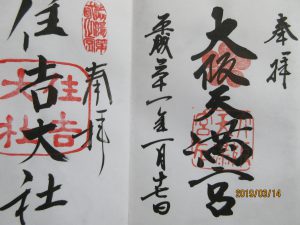 奉拝
大阪天満宮
平成三十一年一月廿七日
奉拝
住吉大社
住吉
大社
2019/03/14